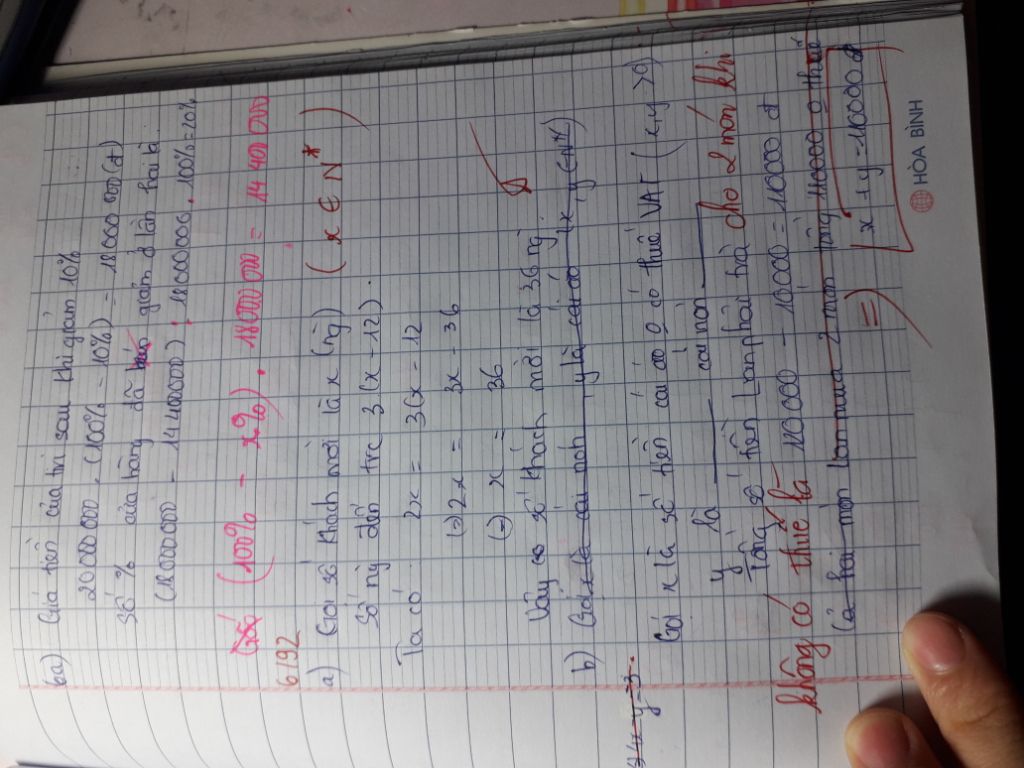 6a) Giá tiền của tivi sau khi giảm 10%
20000 000 . (100% - 10%) = 18000 000 (đ)
Số % cửa hàng đã giảm ở lần hai là:
(18000000 - 14400000) : 18000000 . 100% = 10%
(100% - x%) . 18000 000 = 14 400 000
6192
a) Gọi số khách mời là x (ng) ( x ∈ N* )
Số ng đến trc 3 (x - 12).
Ta có: 2x = 3(x - 12
(=) 2x = 3x - 36
(=) x = 36
Vậy có số khách mời là 36 ng
b) Gọi x là cái nón y là cái áo (x, y ∈ N*)
3/ x - y = 3.
Gọi x là số tiền cái áo 0 có thuế VAT ( x, y > 0)
y là cái nón
Tổng số tiền Lan phải trả cho 2 món khi
không có thuế là 110000 - 10000 = 10000 đ
Cả hai món Lan mua 2 món bằng 110000 0 thuế
=) x + y = 110000 đ
HÒA BÌNH